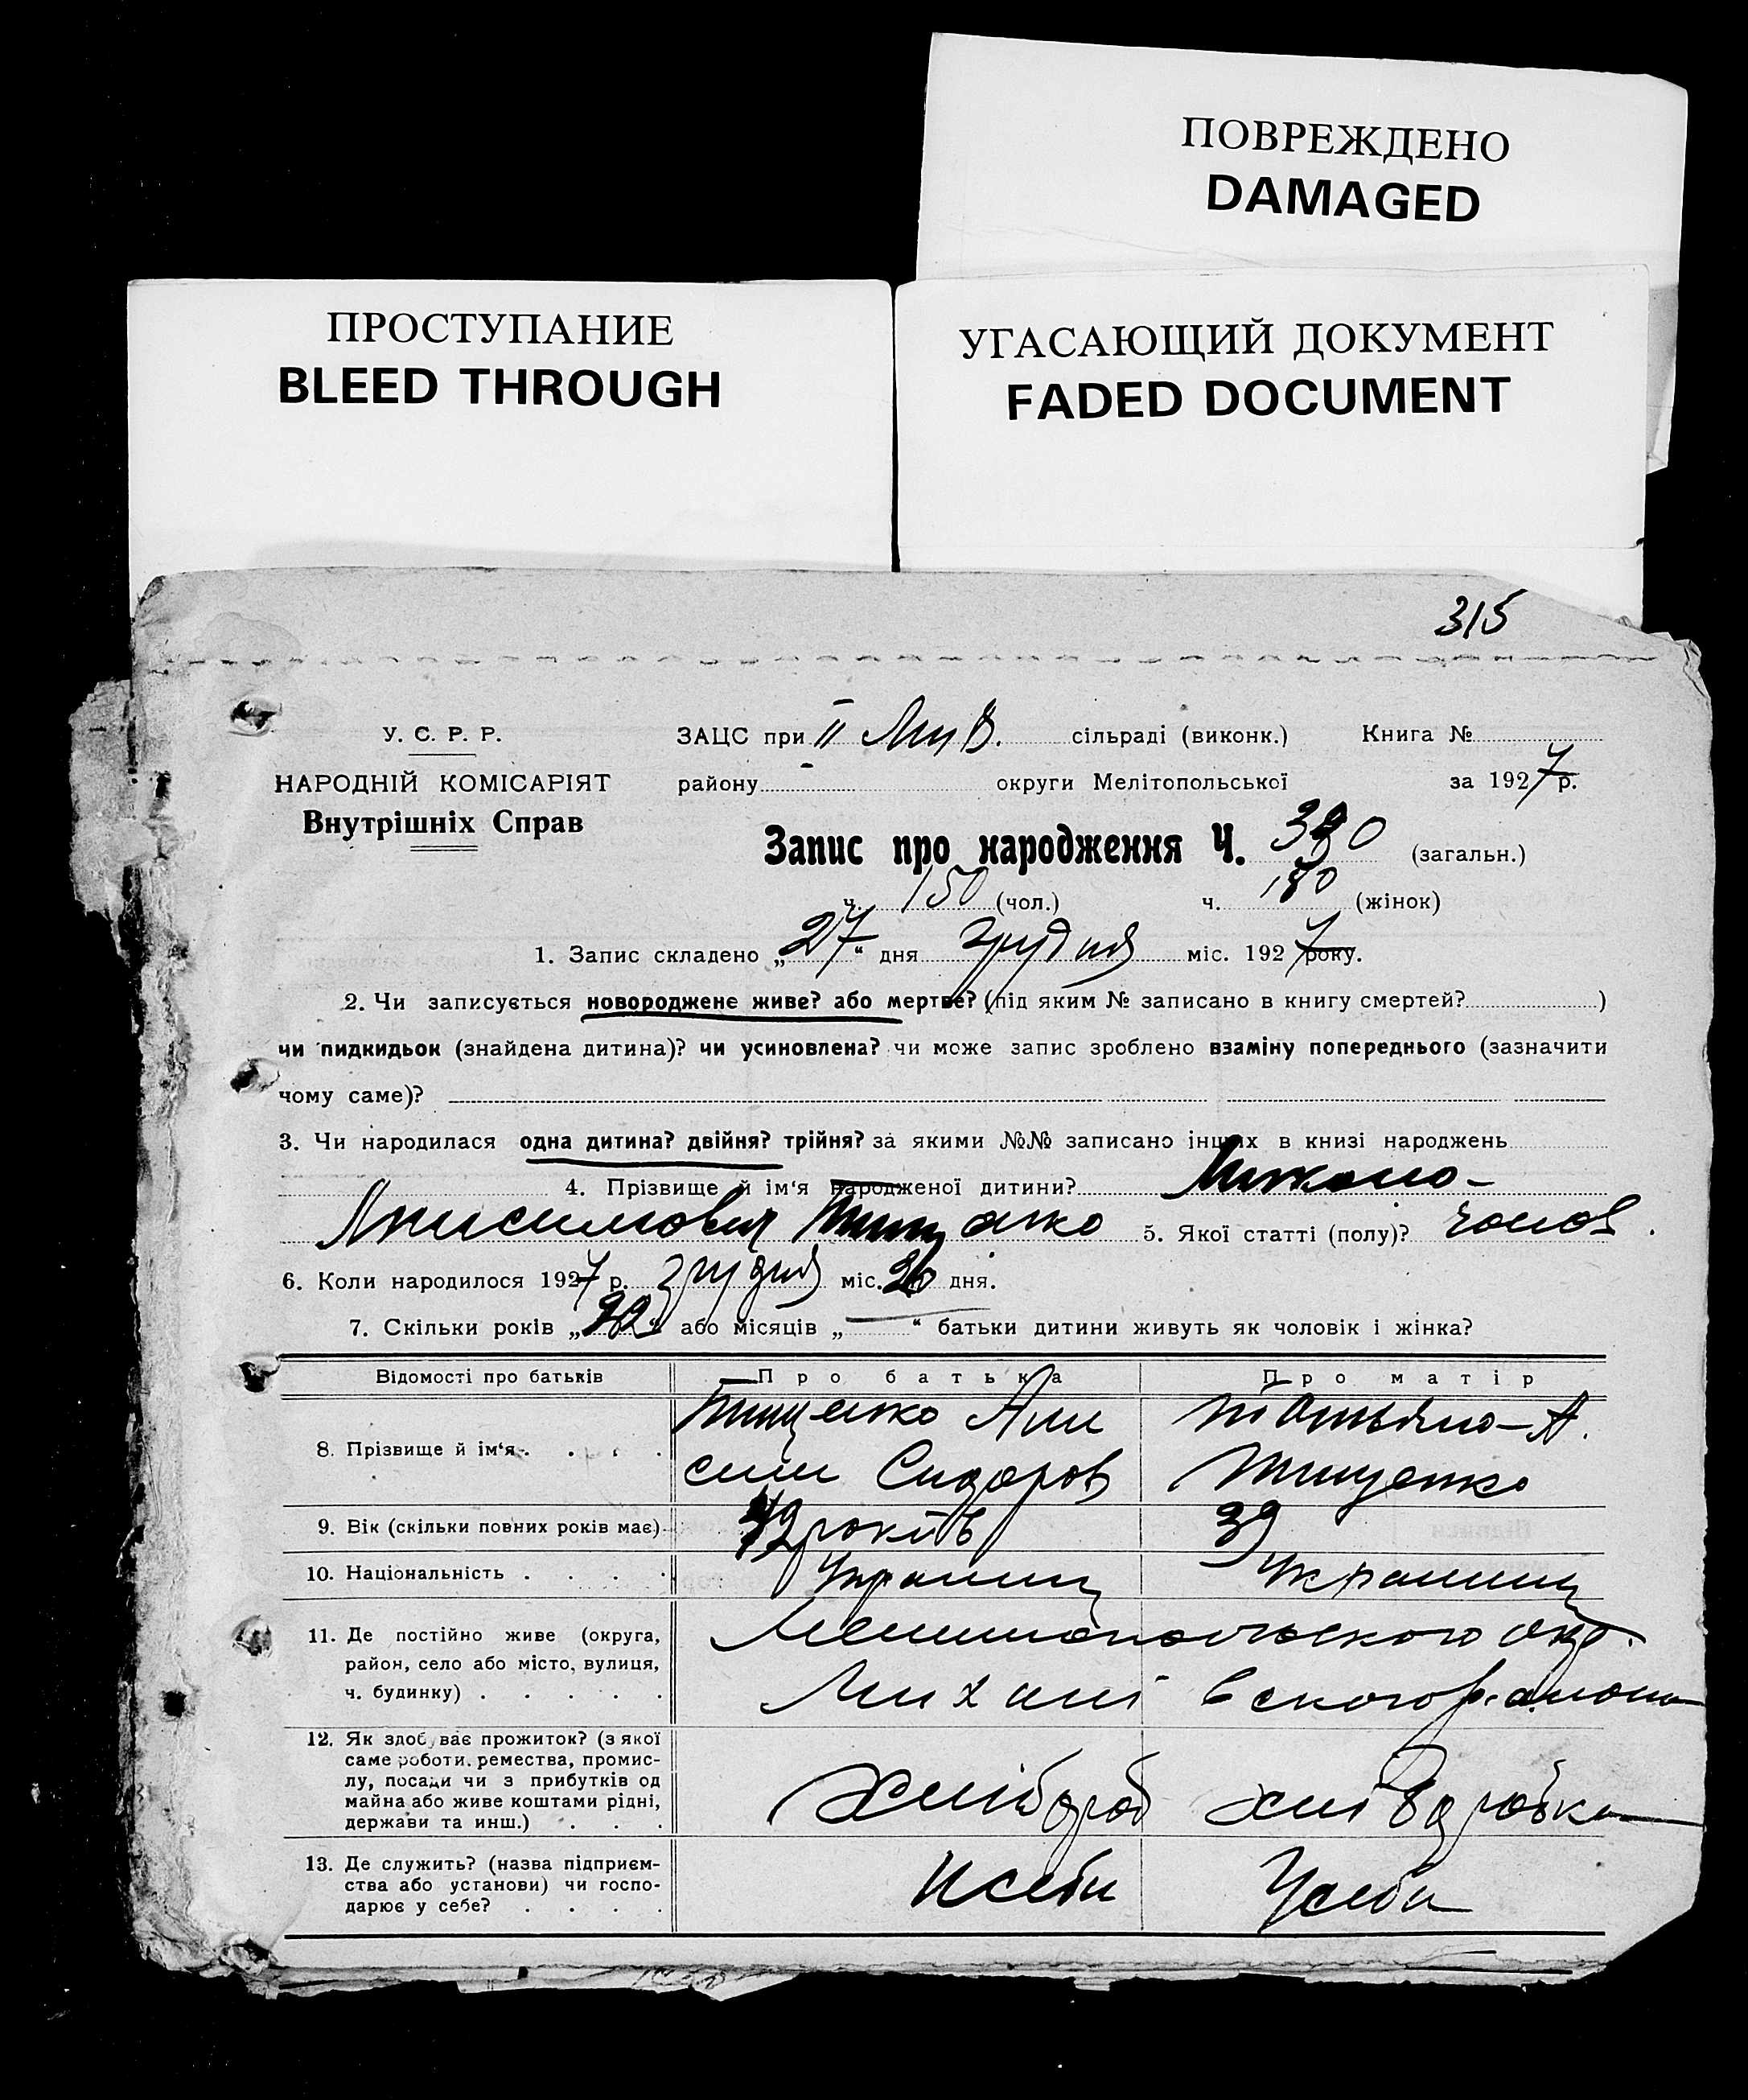 ПОВРЕЖДЕНО
DAMAGED
ПРОСТУПАНИЕ
BLEED THROUGH
УГАСАЮЩИЙ ДОКУМЕНТ
FADED DOCUMENT
315
У. С. Р. Р.
НАРОДНІЙ КОМІСАРІЯТ
Внутрішніх Справ
ЗАЦС при II сільраді (виконк.) Книга №
району округи Мелітопольської за 1927 р.
Запис про народження Ч. (загальн.)
ч. 150 (чол.) ч. 180 (жінок)
1. Запис складено „27“ дня грудня міс. 1927 року.
2. Чи записується новороджене живе? або мертве? (під яким № записано в книгу смертей? )
чи пидкидьок (знайдена дитина)? чи усиновлена? чи може запис зроблено взаміну попереднього (зазначити
чому саме)?
3. Чи народилася одна дитина? двійня? трійня? за якими №№ записано інших в книзі народжень
4. Прізвище й ім‘я народженої дитини?
Тищенко 5. Якої статті (полу)? чолов.
6. Коли народилося 1927 р. грудня міс. 26 дня.
7. Скільки років „ “ або місяців „ “ батьки дитини живуть як чоловік і жінка?
Відомості про батьків Про батька Про матір
8. Прізвище й ім‘я . . . .
Тищенко Ани
сим Сидоров
Татьяна А.
Тищенко
9. Вік (скільки повних років має) 42 років 39
10. Національність . . . . Украинец Украинец
11. Де постійно живе (округа,
район, село або місто, вулиця,
ч. будинку) . . . . .
Мелитопольского окр.
Михайлівского района
12. Як здобуває прожиток? (з якої
саме роботи, ремества, промис-
лу, посади чи з прибутків од
майна або живе коштами рідні,
держави та инш.) . . .
хлібороб хліборобка
13. Де служить? (назва підприєм-
ства або установи) чи госпо-
дарює у себе? . . . .
У себи У себи